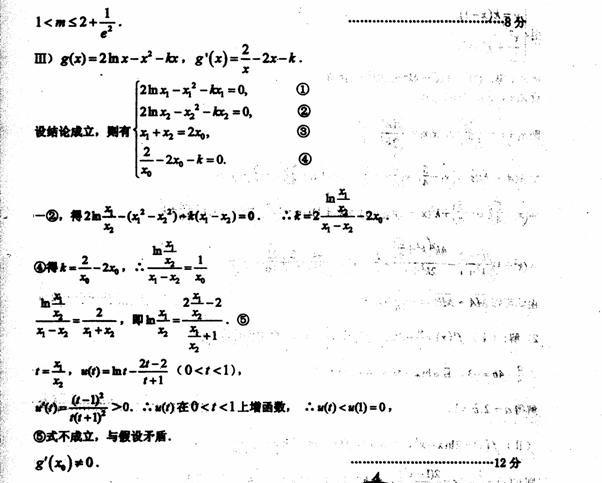 1<m≤2+1/e². ……………………………8分
Ⅲ) g(x)=2lnx−x²−kx, g'(x)=2/x−2x−k.
设结论成立，则有
2lnx₁−x₁²−kx₁=0, ①
2lnx₂−x₂²−kx₂=0, ②
x₁+x₂=2x₀, ③
2/x₀−2x₀−k=0. ④
一②，得2ln(x₁/x₂)−(x₁²−x₂²)−k(x₁−x₂)=0. ∴k=2(ln(x₁/x₂))/(x₁−x₂)−2x₀.
④得k=2/x₀−2x₀, ∴(ln(x₁/x₂))/(x₁−x₂)=1/x₀
(ln(x₁/x₂))/(x₁−x₂)=2/(x₁+x₂), 即ln(x₁/x₂)=(2(x₁/x₂)−2)/((x₁/x₂)+1). ⑤
t=x₁/x₂, u(t)=lnt−(2t−2)/(t+1) (0<t<1),
u'(t)=(t−1)²/(t(t+1)²)>0. ∴u(t)在0<t<1上增函数, ∴u(t)<u(1)=0,
⑤式不成立，与假设矛盾.
g'(x₀)≠0. ……………………………12分